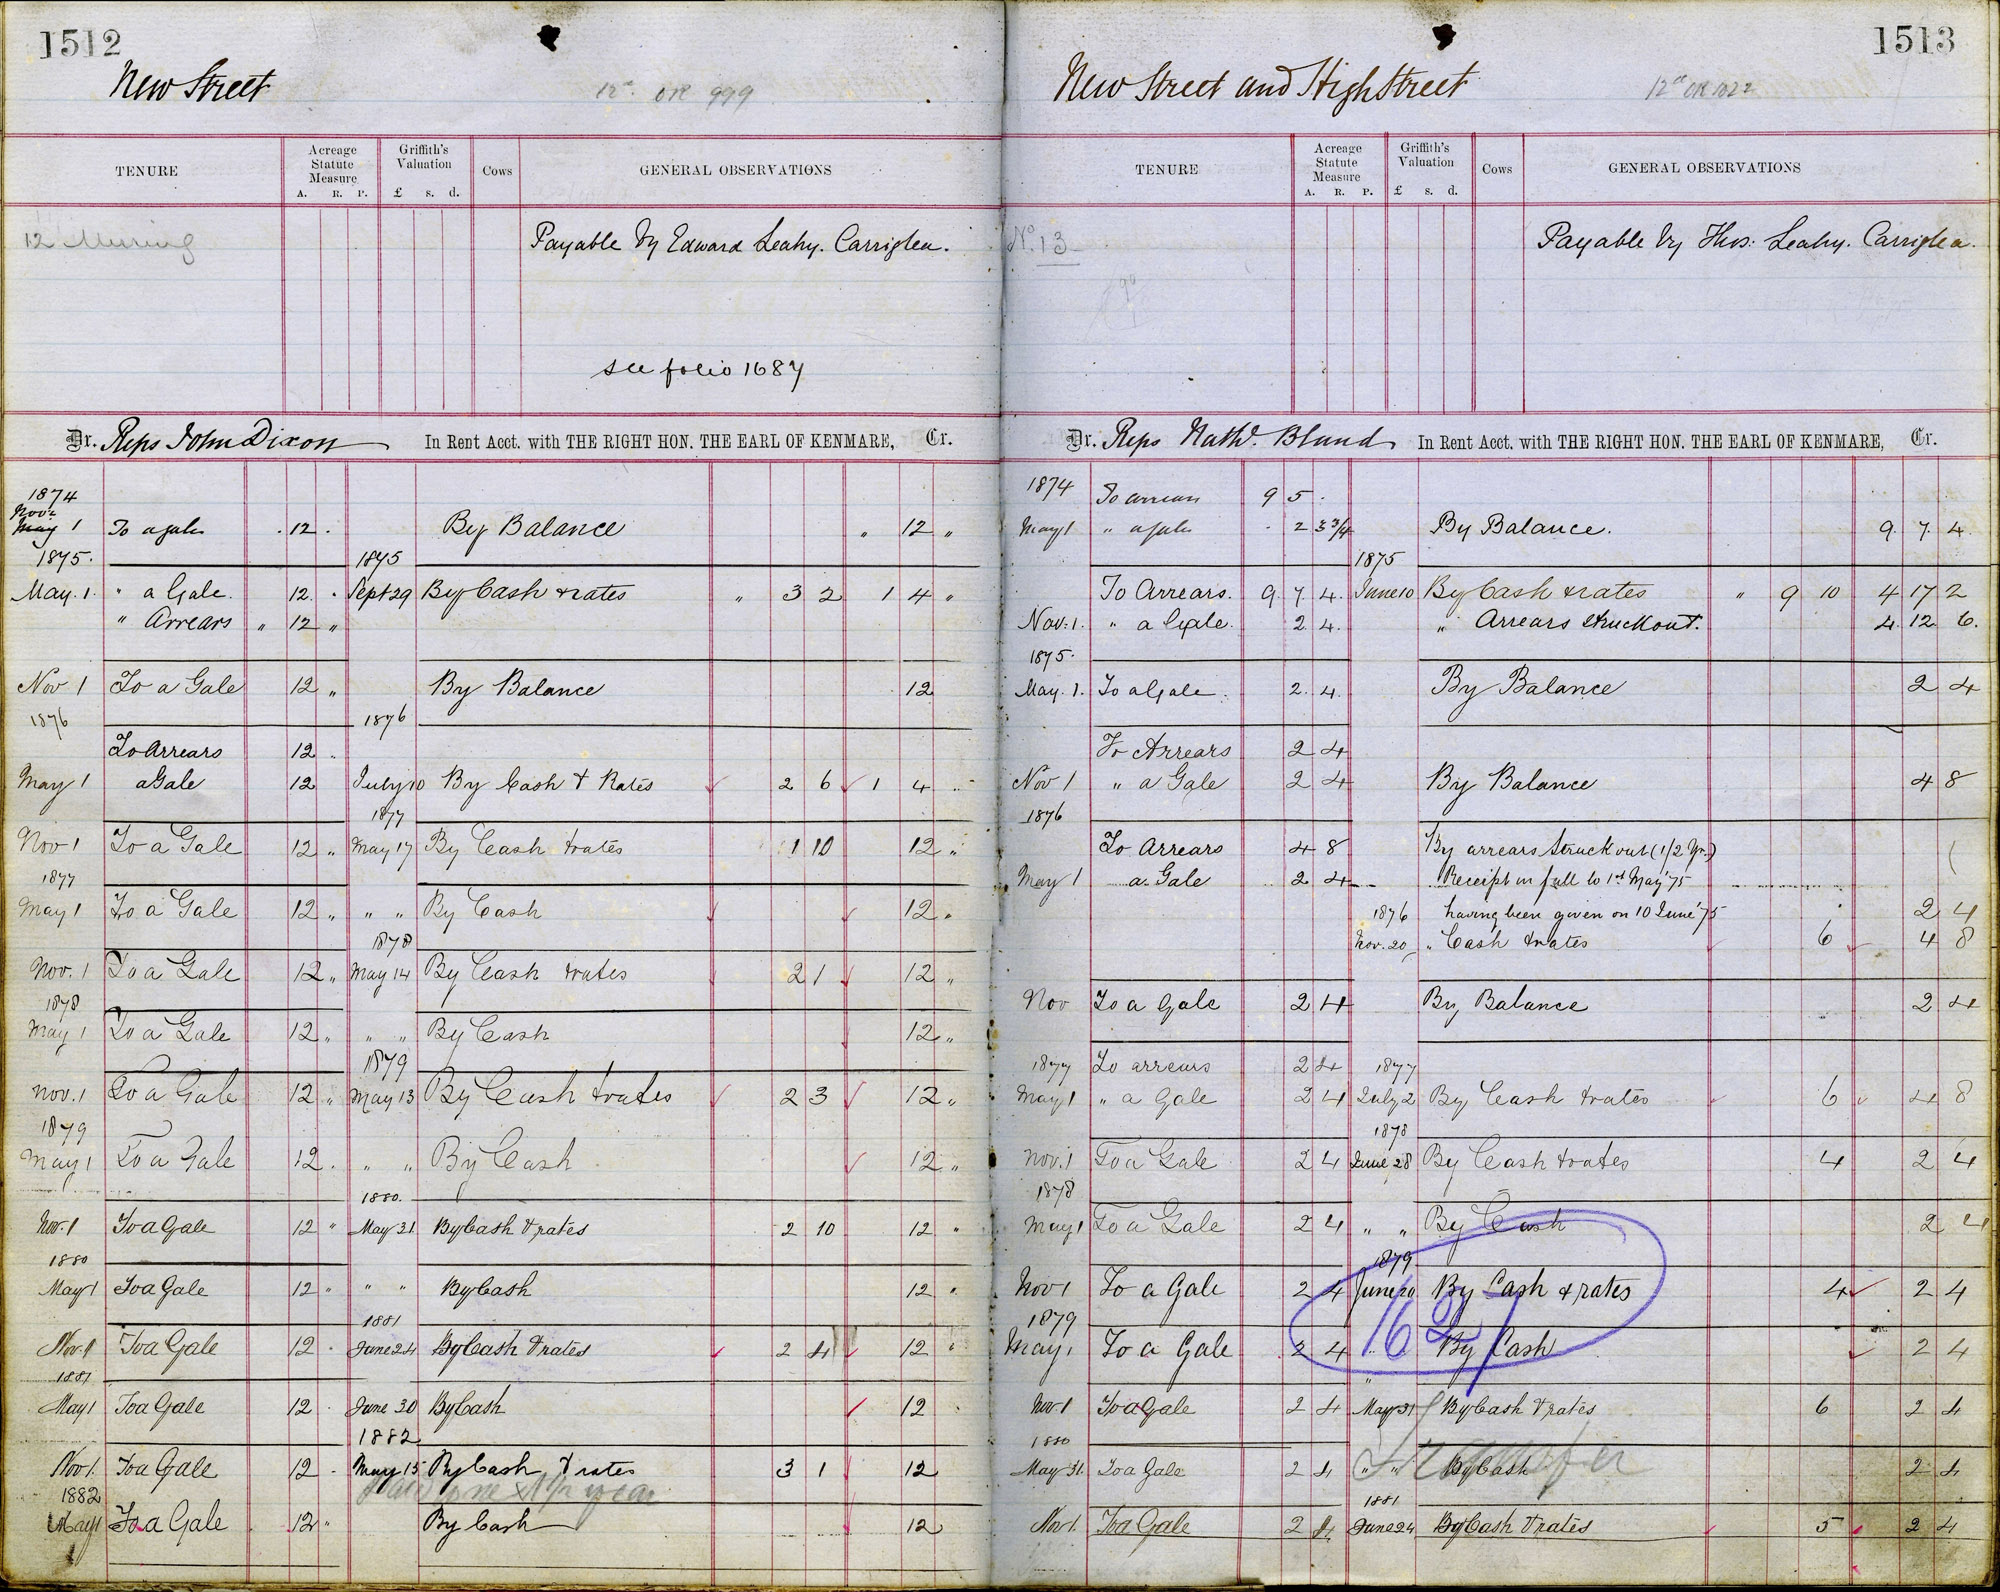 1512
New Street
12a OR 979
TENURE Acreage Statute Measure A. R. P. Griffith's Valuation £ s. d. Cows GENERAL OBSERVATIONS
12
Payable by Edward Leahy. Carriglea.
see folio 1687
Dr. Reps John Dixon In Rent Acct. with THE RIGHT HON. THE EARL OF KENMARE, Cr.
1874
Nov.
May 1 To a gale . 12 . By Balance " 12 "
1875. 1875
May. 1. " a Gale. 12. " Sept 29 By Cash & rates " 3 2 1 4 "
" Arrears " 12 "
Nov 1 To a Gale 12 " By Balance 12
1876 1876
To Arrears 12 "
May 1 a Gale 12 July 10 By Cash & Rates 2 6 1 4 "
1877
Nov 1 To a Gale 12 " May 17 By Cash & rates 1 10 12 "
1877
May 1 To a Gale 12 " " " By Cash 12 "
1878
Nov. 1 To a Gale 12 " May 14 By Cash & rates 2 1 12 "
1878
May 1 To a Gale 12 " " " By Cash 12 "
1879
Nov. 1 To a Gale 12 " May 13 By Cash & rates 2 3 12 "
1879
May 1 To a Gale 12 . " " By Cash 12 "
1880.
Nov. 1 To a Gale 12 " May 31 By Cash & rates 2 10 12 "
1880
May 1 To a Gale 12 " " " By Cash 12 "
1881
Nov. 1 To a Gale 12 . June 24 By Cash & rates 2 4 12 "
1881
May 1 To a Gale 12 . June 30 By Cash 12 .
1882
Nov 1. To a Gale 12 . May 15 By Cash & rates 3 1 12
1882 year
May 1 To a Gale 12 " By Cash 12
1513
New Street and High Street
12a OR 1022
TENURE Acreage Statute Measure A. R. P. Griffith's Valuation £ s. d. Cows GENERAL OBSERVATIONS
No. 13
Payable by Thos: Leahy. Carriglea.
Dr. Reps Nathl. Bland In Rent Acct. with THE RIGHT HON. THE EARL OF KENMARE, Cr.
1874 To arrears 9 5 .
May 1 " a gale . 2 3 3/4 By Balance. 9. 7. 4.
1875
To Arrears. 9 7 4. June 10 By Cash & rates " 9 10 4 17 2
Nov: 1. " a Gale. 2. 4. " Arrears struck out. 4. 12 6.
1875.
May. 1. To a Gale. 2. 4. By Balance 2 4
To Arrears 2 4
Nov 1 " a Gale 2 4 By Balance 4 8
1876
To Arrears 4 8 By arrears Struck out (1/2 Yr.)
May 1 a. Gale 2 4 Receipt in full to 1st May '75
1876 having been given on 10 June '75 2 4
Nov. 20 " Cash & rates 6 4 8
Nov To a Gale 2 4 By Balance 2 4
1877 To arrears 2 4 1877
May 1 " a Gale 2 4 July 2 By Cash & rates 6 4 8
1878
Nov. 1 To a Gale 2 4 June 28 By Cash & rates 4 2 4
1878
May 1 To a Gale 2 4 " " By Cash 2 4
1879
Nov 1 To a Gale 2 4 June 20 By Cash & rates 4 2 4
1879
May 1 To a Gale 2 4 " By Cash 2 4
Nov 1 To a Gale 2 4 May 31 By Cash & rates 6 2 4
1880
May 31. To a Gale 2 4 " " By Cash 2 4
1881
Nov 1. To a Gale 2 4. June 24 By Cash & rates 5 2 4